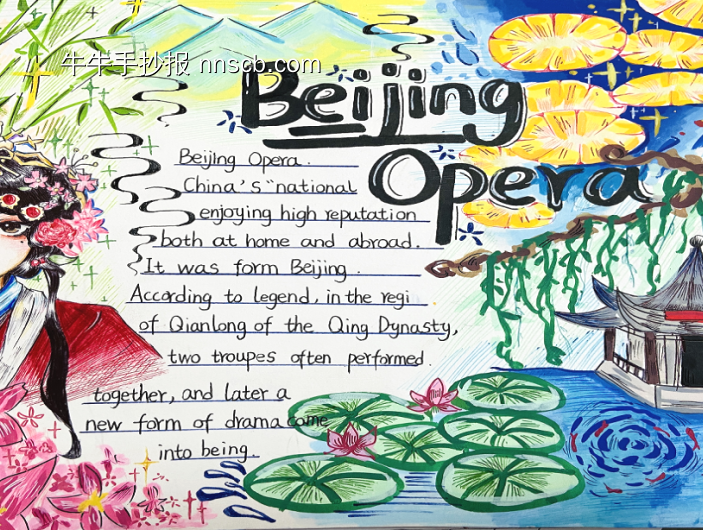 牛牛手抄报 nnscb.com
Beijing
Opera
Beijing Opera.
China's "national
enjoying high reputation
both at home and abroad.
It was form Beijing.
According to legend, in the regi
of Qianlong of the Qing Dynasty,
two troupes often performed.
together, and later a
new form of drama come
into being.